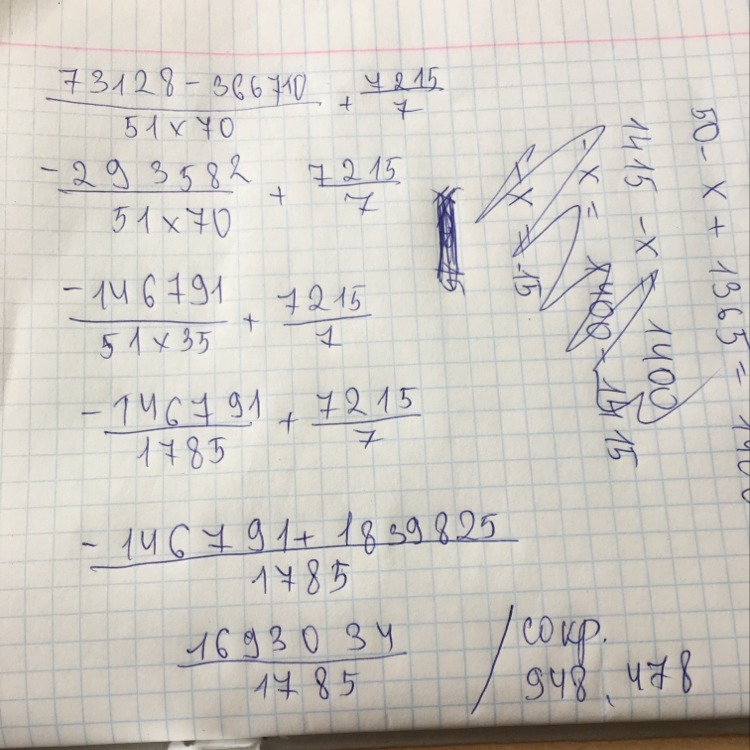 73128 - 366710 / 51 x 70 + 7215 / 7
- 293582 / 51 x 70 + 7215 / 7
- 146791 / 51 x 35 + 7215 / 7
- 146791 / 1785 + 7215 / 7
- 146791 + 1839825 / 1785
1693034 / 1785
сокр.
948,478
50 - x + 1365 = 1400
1415 - x = 1400
- x = 1400 - 1415
- x = -15